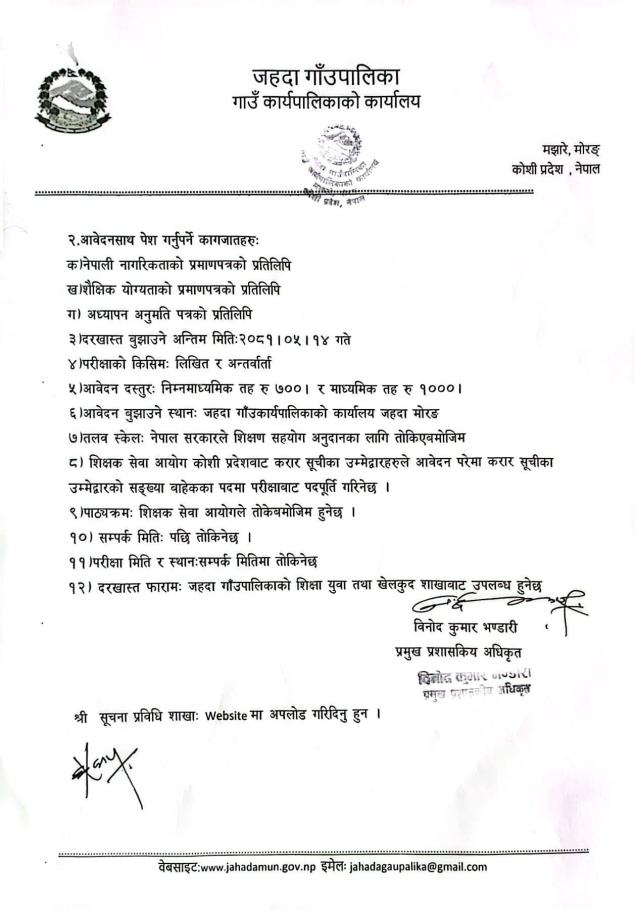 जहदा गाँउपालिका
गाउँ कार्यपालिकाको कार्यालय
जहदा गाउँपालिका
गाउँ कार्यपालिकाको कार्यालय
कोशी प्रदेश, नेपाल
मझारे, मोरङ्
कोशी प्रदेश , नेपाल
२.आवेदनसाथ पेश गर्नुपर्ने कागजातहरुः
क)नेपाली नागरिकताको प्रमाणपत्रको प्रतिलिपि
ख)शैक्षिक योग्यताको प्रमाणपत्रको प्रतिलिपि
ग) अध्यापन अनुमति पत्रको प्रतिलिपि
३)दरखास्त बुझाउने अन्तिम मितिः२०८१।०५।१४ गते
४)परीक्षाको किसिमः लिखित र अन्तर्वार्ता
५)आवेदन दस्तुरः निम्नमाध्यमिक तह रु ७००। र माध्यमिक तह रु १०००।
६)आवेदन बुझाउने स्थानः जहदा गाँउकार्यपालिकाको कार्यालय जहदा मोरङ
७)तलब स्केलः नेपाल सरकारले शिक्षण सहयोग अनुदानका लागि तोकिएबमोजिम
८) शिक्षक सेवा आयोग कोशी प्रदेशबाट करार सूचीका उम्मेद्वारहरुले आवेदन परेमा करार सूचीका
उम्मेद्वारको सङ्ख्या बाहेकका पदमा परीक्षाबाट पदपूर्ति गरिनेछ ।
९)पाठ्यक्रमः शिक्षक सेवा आयोगले तोकेबमोजिम हुनेछ ।
१०) सम्पर्क मितिः पछि तोकिनेछ ।
११)परीक्षा मिति र स्थानःसम्पर्क मितिमा तोकिनेछ
१२) दरखास्त फारामः जहदा गाँउपालिकाको शिक्षा युवा तथा खेलकुद शाखाबाट उपलब्ध हुनेछ
विनोद कुमार भण्डारी
प्रमुख प्रशासकिय अधिकृत
विनोद कुमार भण्डारी
प्रमुख प्रशासकीय अधिकृत
श्री सूचना प्रविधि शाखाः Website मा अपलोड गरिदिनु हुन ।
वेबसाइट:www.jahadamun.gov.np इमेलः jahadagaupalika@gmail.com